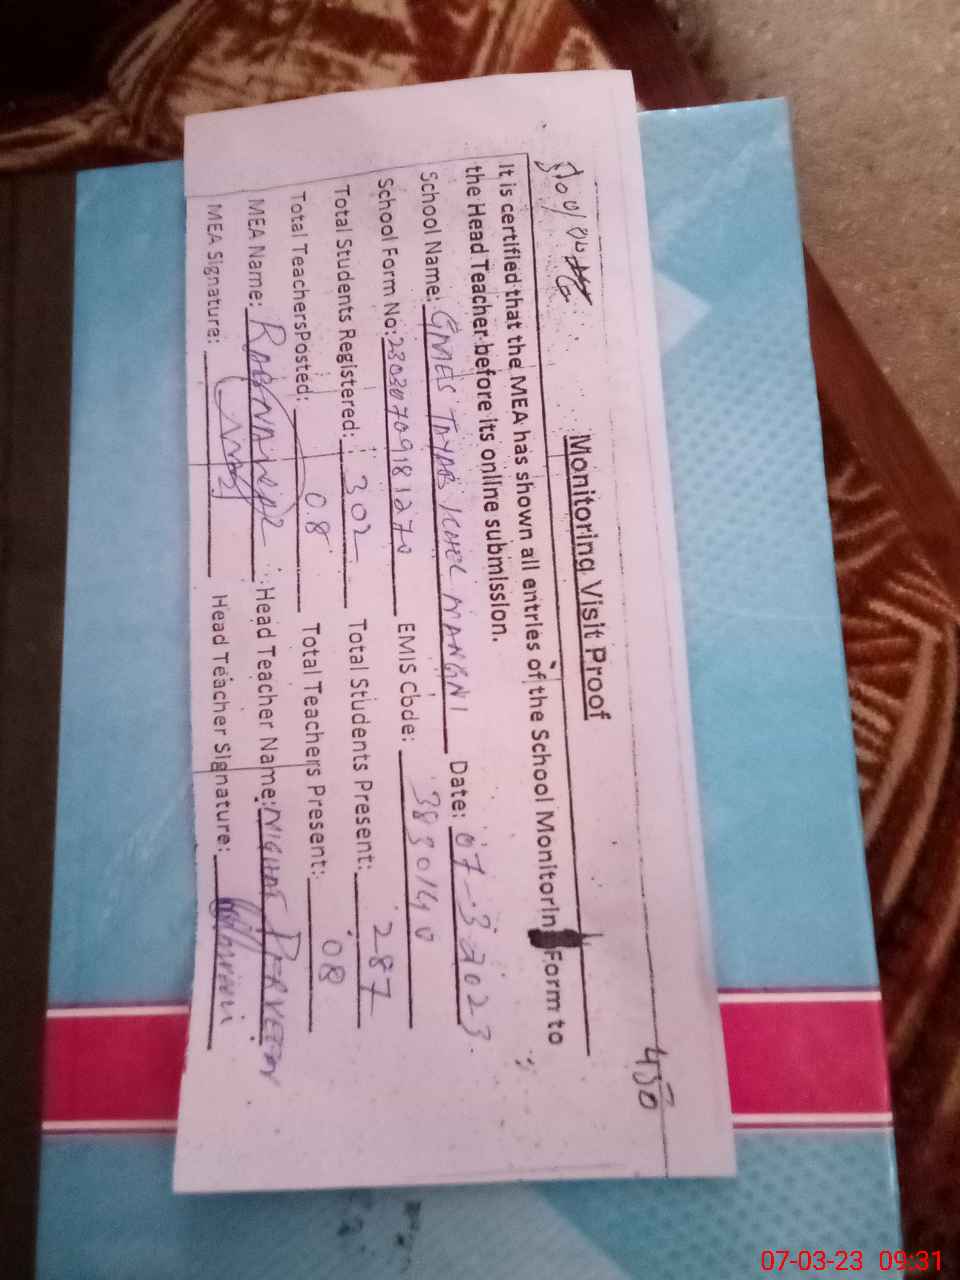 450
Monitoring Visit Proof
It is certified that the MEA has shown all entries of the School Monitorin Form to
the Head Teacher before its online submission.
School Name: GMES TAYAB KHEL MANGNI Date: 07-3-2023.
School Form No: EMIS Code:
Total Students Registered: 302 Total Students Present: 287
Total TeachersPosted: 08 Total Teachers Present: 08
MEA Name: Head Teacher Name: PERVEEN
MEA Signature: Head Teacher Signature:
07-03-23 09:31